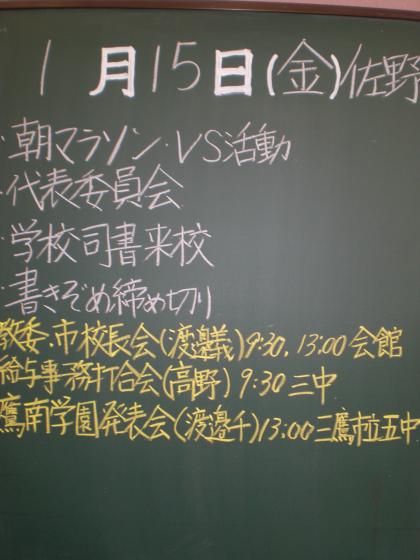 1月15日(金)佐野
・朝マラソン・VS活動
・代表委員会
・学校司書来校
・書きぞめ締め切り
教委・市校長会(渡邊義)9:30,13:00会館
給与事務打合会(高野)9:30三中
鷹南学園発表会(渡邉千)13:00三鷹市立五中